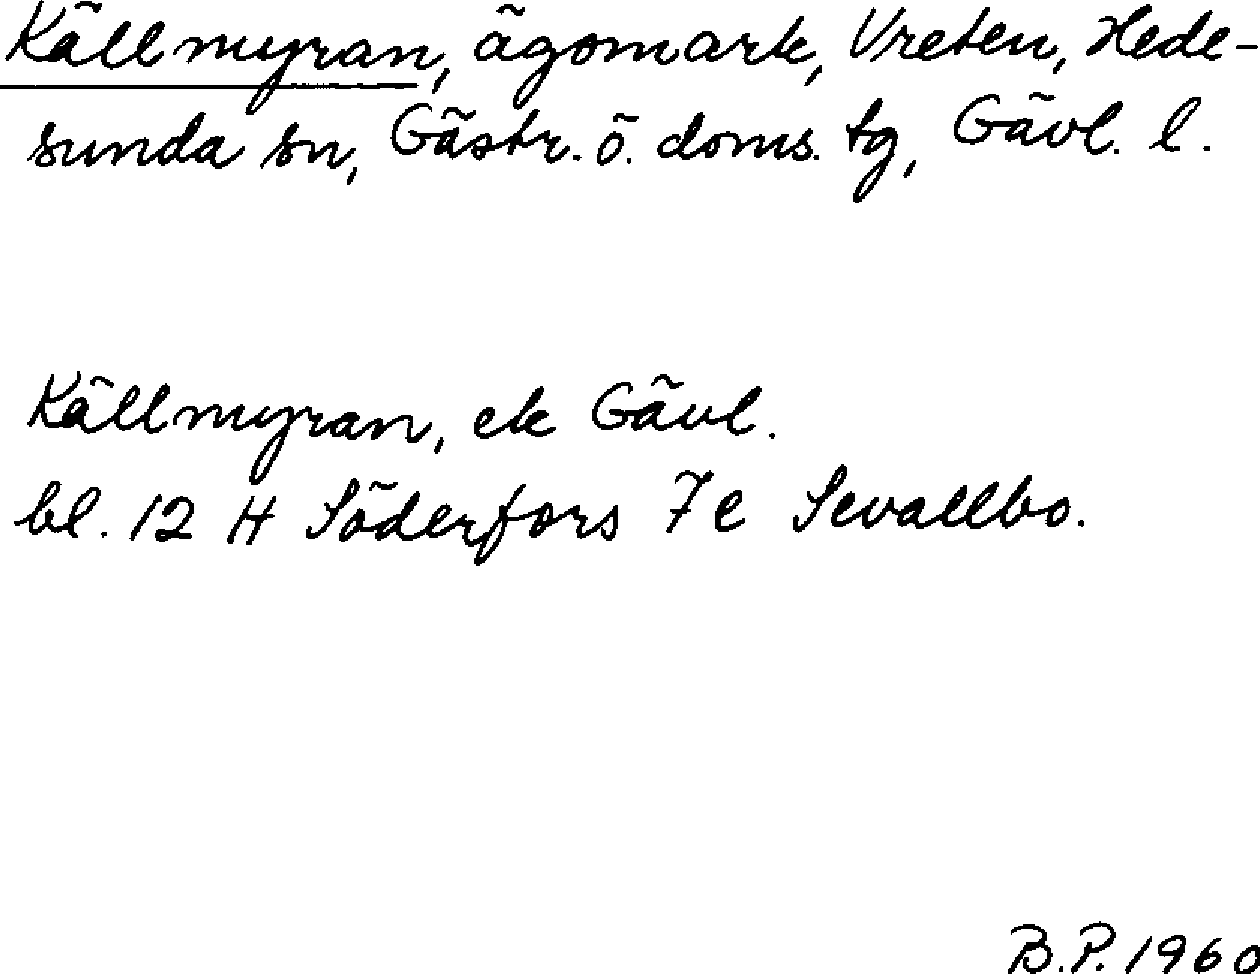 Källmyran, ägomark, Vreten, Hede-
sunda sn, Gästr. ö. doms. tg, Gävl. l.
Källmyran, ek Gävl.
bl. 12 H Söderfors 7 e Sevallbo.
B.P. 1960